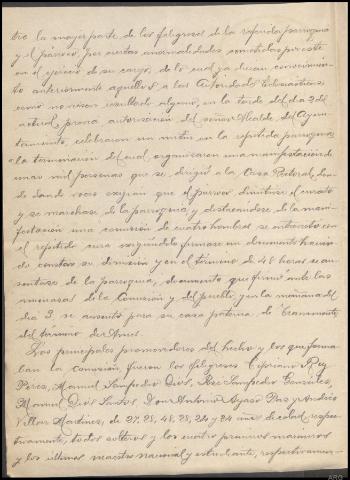 tre la mayor parte de los feligreses de la referida parroquia
y el párroco, por ciertas anormalidades cometidas por este
en el ejercicio de su cargo, de lo cual ya dieran conocimien-
to anteriormente aquellos a las Autoridades Eclesiásticas,
como no viesen resultado alguno, en la tarde del día 2 del
actual, previa autorización del señor Alcalde del Ayun-
tamiento, celebraron un mitin en la repetida parroquia,
a la terminación del cual, organizaron una manifestación de
unas mil personas que se dirigió a la Casa Rectoral, don-
de dando voces exigían que el párroco dimitiese el curato
y se marchase de la parroquia, y destacándose de la mani-
festación una comisión de cuatro hombres se entrevistó con
el repetido cura rogándole firmase un documento hacien-
do constar su dimisión y en el término de 48 horas se au-
sentase de la parroquia, documento que firmó ante las
amenazas de la Comisión y del pueblo, y en la mañana del
día 3 se ausentó para su casa paterna de
del término de
Los principales promovedores del hecho y los que forma-
ban la comisión, fueron los feligreses Cipriano Rey
Pérez, Manuel Sampedro Dios, José Sampedro González,
Manuel Dios Santos, Don Antonio Paz y
Villova Martínez, de 27, 28, 48, 28, 24 y 24 años de edad, respec-
tivamente, todos solteros y los cuatro primeros marineros
y los últimos maestro nacional y estudiante, respectivamen-
ARG